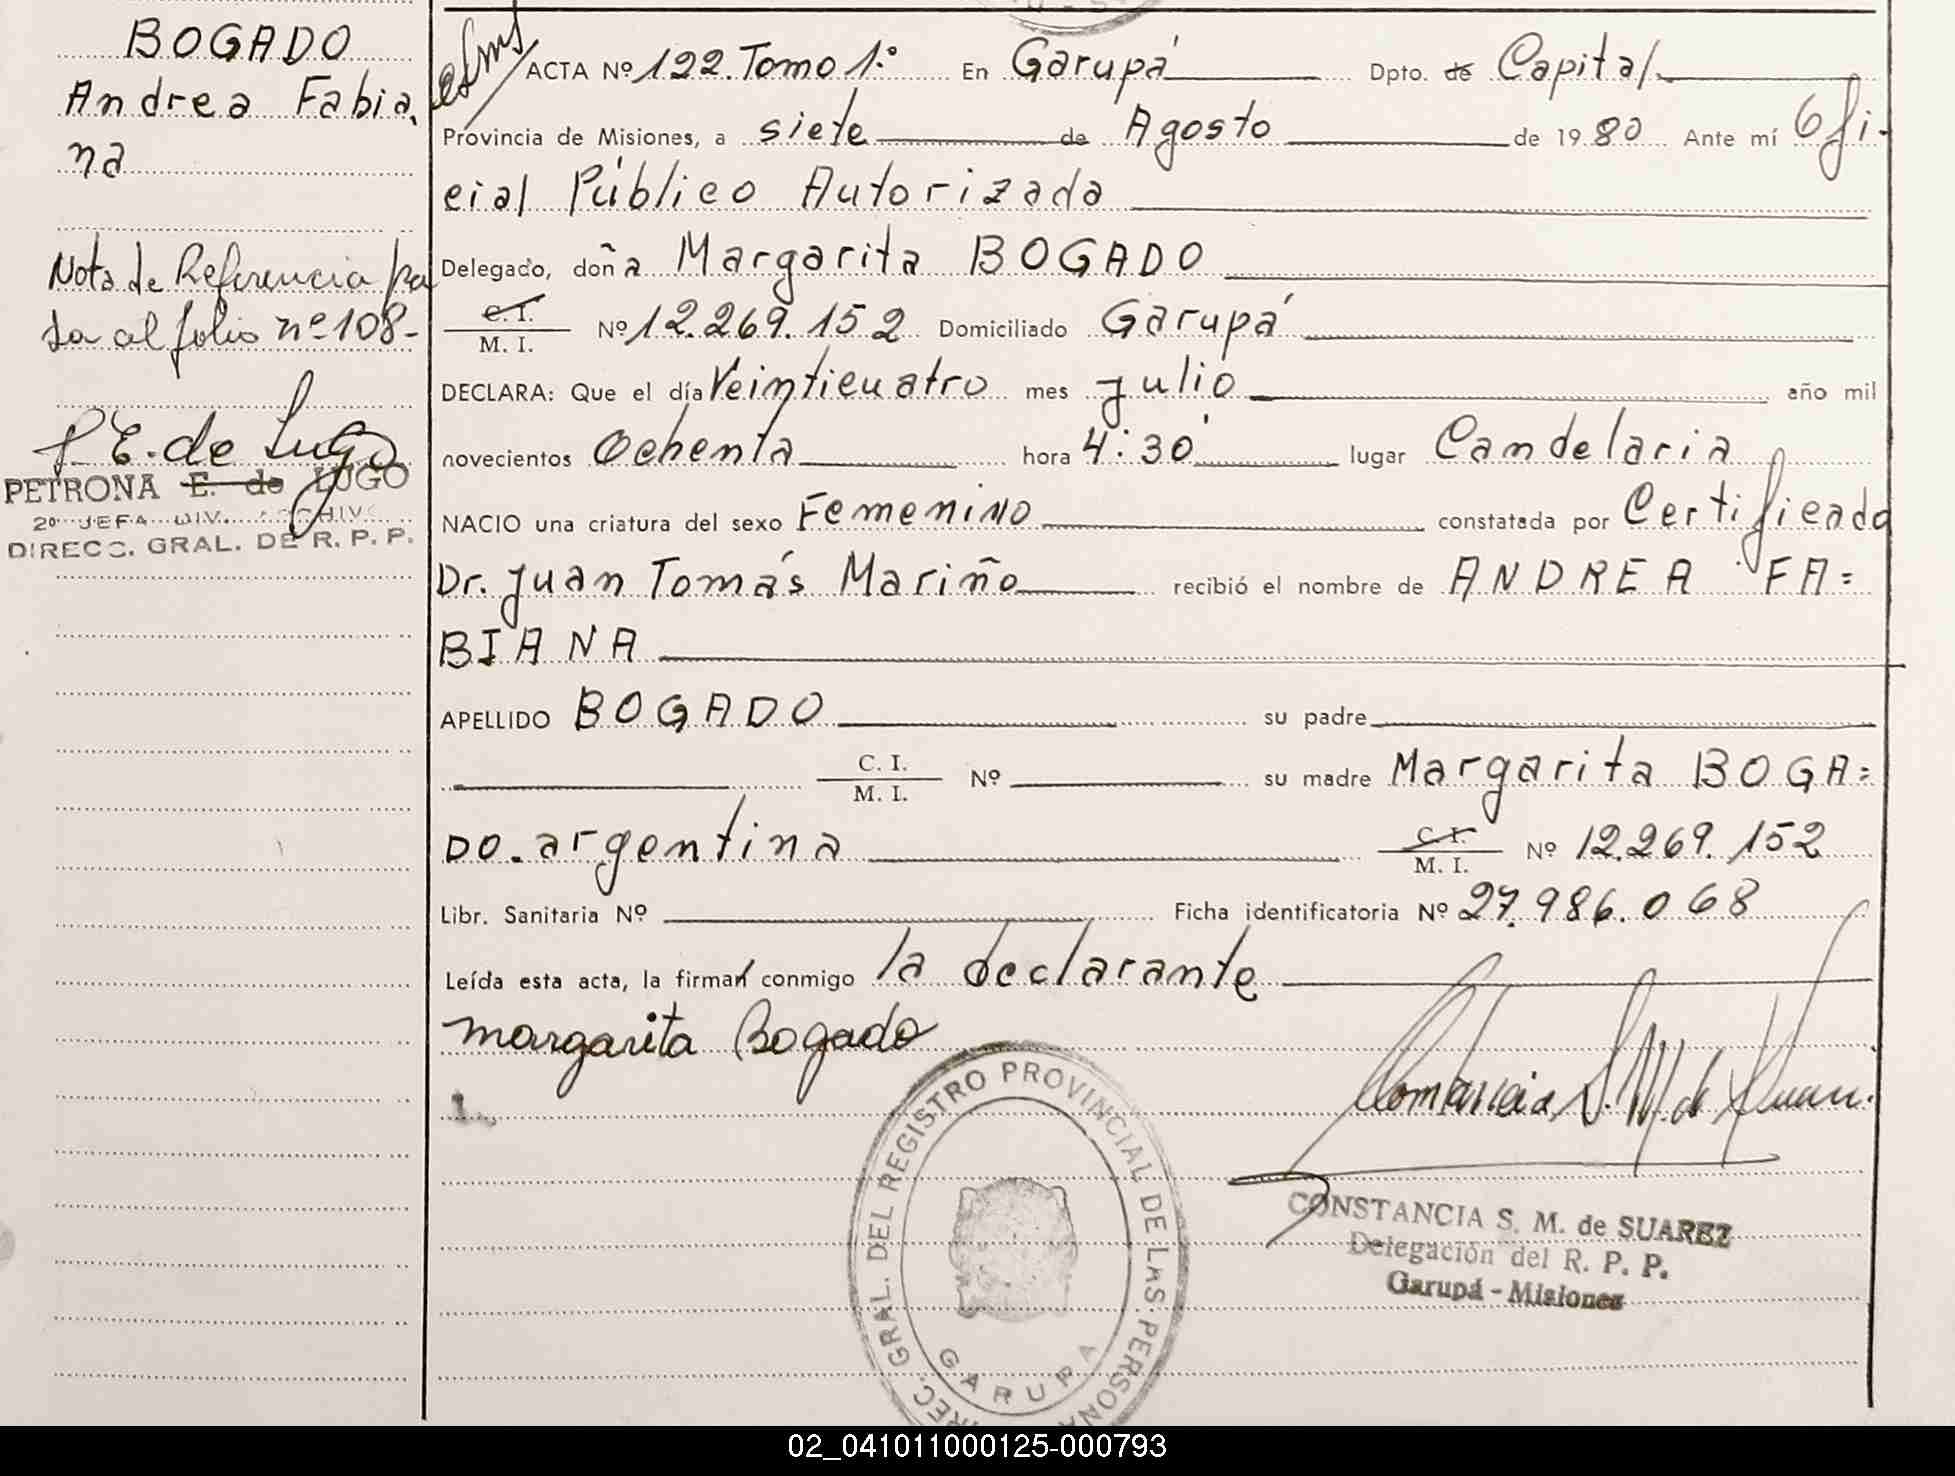 BOGADO
Andrea Fabia.
na
Nota de Referencia pa
sa al folio nº 108-
P E. de Lugo
PETRONA E. de LUGO
2º JEFA DIV. ARCHIVO
DIRECC. GRAL. DE R. P. P.
ACTA Nº 122. Tomo 1º En Garupá Dpto. de Capital
Provincia de Misiones, a siete de Agosto de 1980 Ante mí Ofi-
cial Público Autorizada
Delegado, doña Margarita BOGADO
C. I.
M. I. Nº 12.269.152 Domiciliado Garupá
DECLARA: Que el día Veinticuatro mes julio año mil
novecientos Ochenta hora 4:30' lugar Candelaria
NACIO una criatura del sexo Femenino constatada por Certificado
Dr. Juan Tomás Mariño recibió el nombre de ANDREA FA=
BIANA
APELLIDO BOGADO su padre
C. I.
M. I. Nº su madre Margarita BOGA=
DO. argentina C. I.
M. I. Nº 12.269.152
Libr. Sanitaria Nº Ficha identificatoria Nº 27.986.068
Leída esta acta, la firman conmigo la declarante
Margarita Bogado
Constancia S. M. de Suarez
CONSTANCIA S. M. de SUAREZ
Delegación del R. P. P.
Garupá - Misiones
DIREC. GRAL. DEL REGISTRO PROVINCIAL DE LAS PERSONAS
GARUPA
02_041011000125-000793